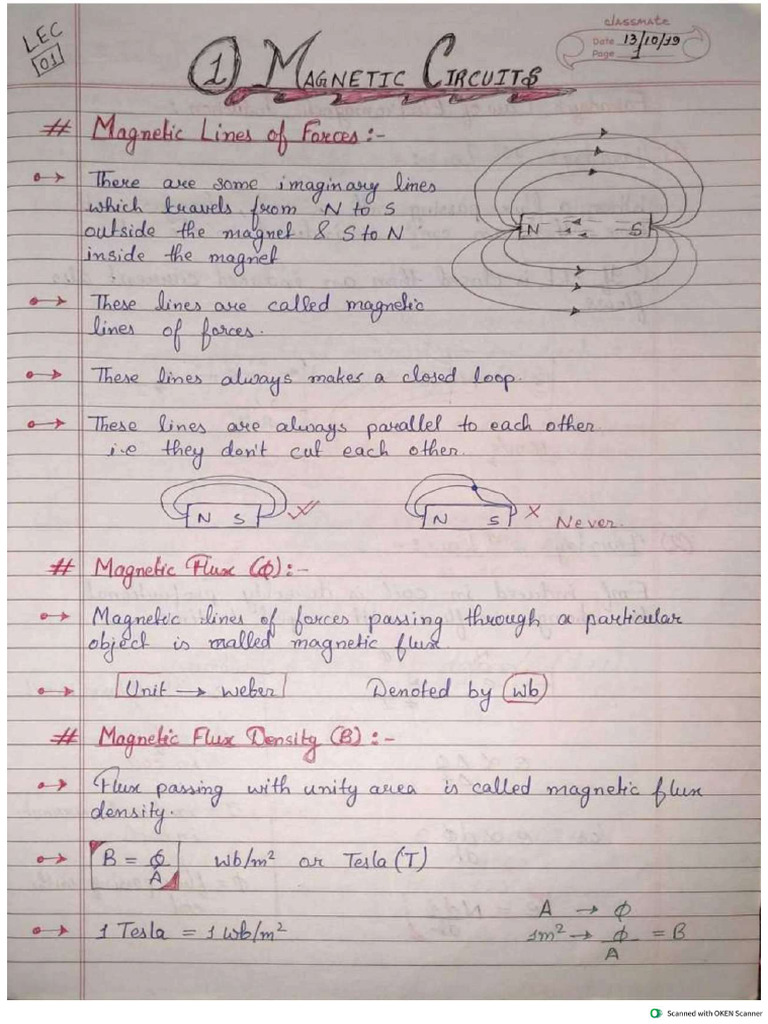 LEC
01
classmate
Date 13/10/19
Page 1
1 MAGNETIC CIRCUITS
# Magnetic Lines of Forces :-
There are some imaginary lines
which travels from N to S
outside the magnet & S to N
inside the magnet
N S
These lines are called magnetic
lines of forces.
These lines always makes a closed loop.
These lines are always parallel to each other
i.e they don't cut each other.
N S
N S × Never.
# Magnetic Flux (ϕ) :-
Magnetic lines of forces passing through a particular
object is called magnetic flux
Unit → weber Denoted by wb
# Magnetic Flux Density (B) :-
Flux passing with unity area is called magnetic flux
density.
B = ϕ/A wb/m² or Tesla (T)
1 Tesla = 1 wb/m²
A → ϕ
1m² → ϕ/A = B
Scanned with OKEN Scanner